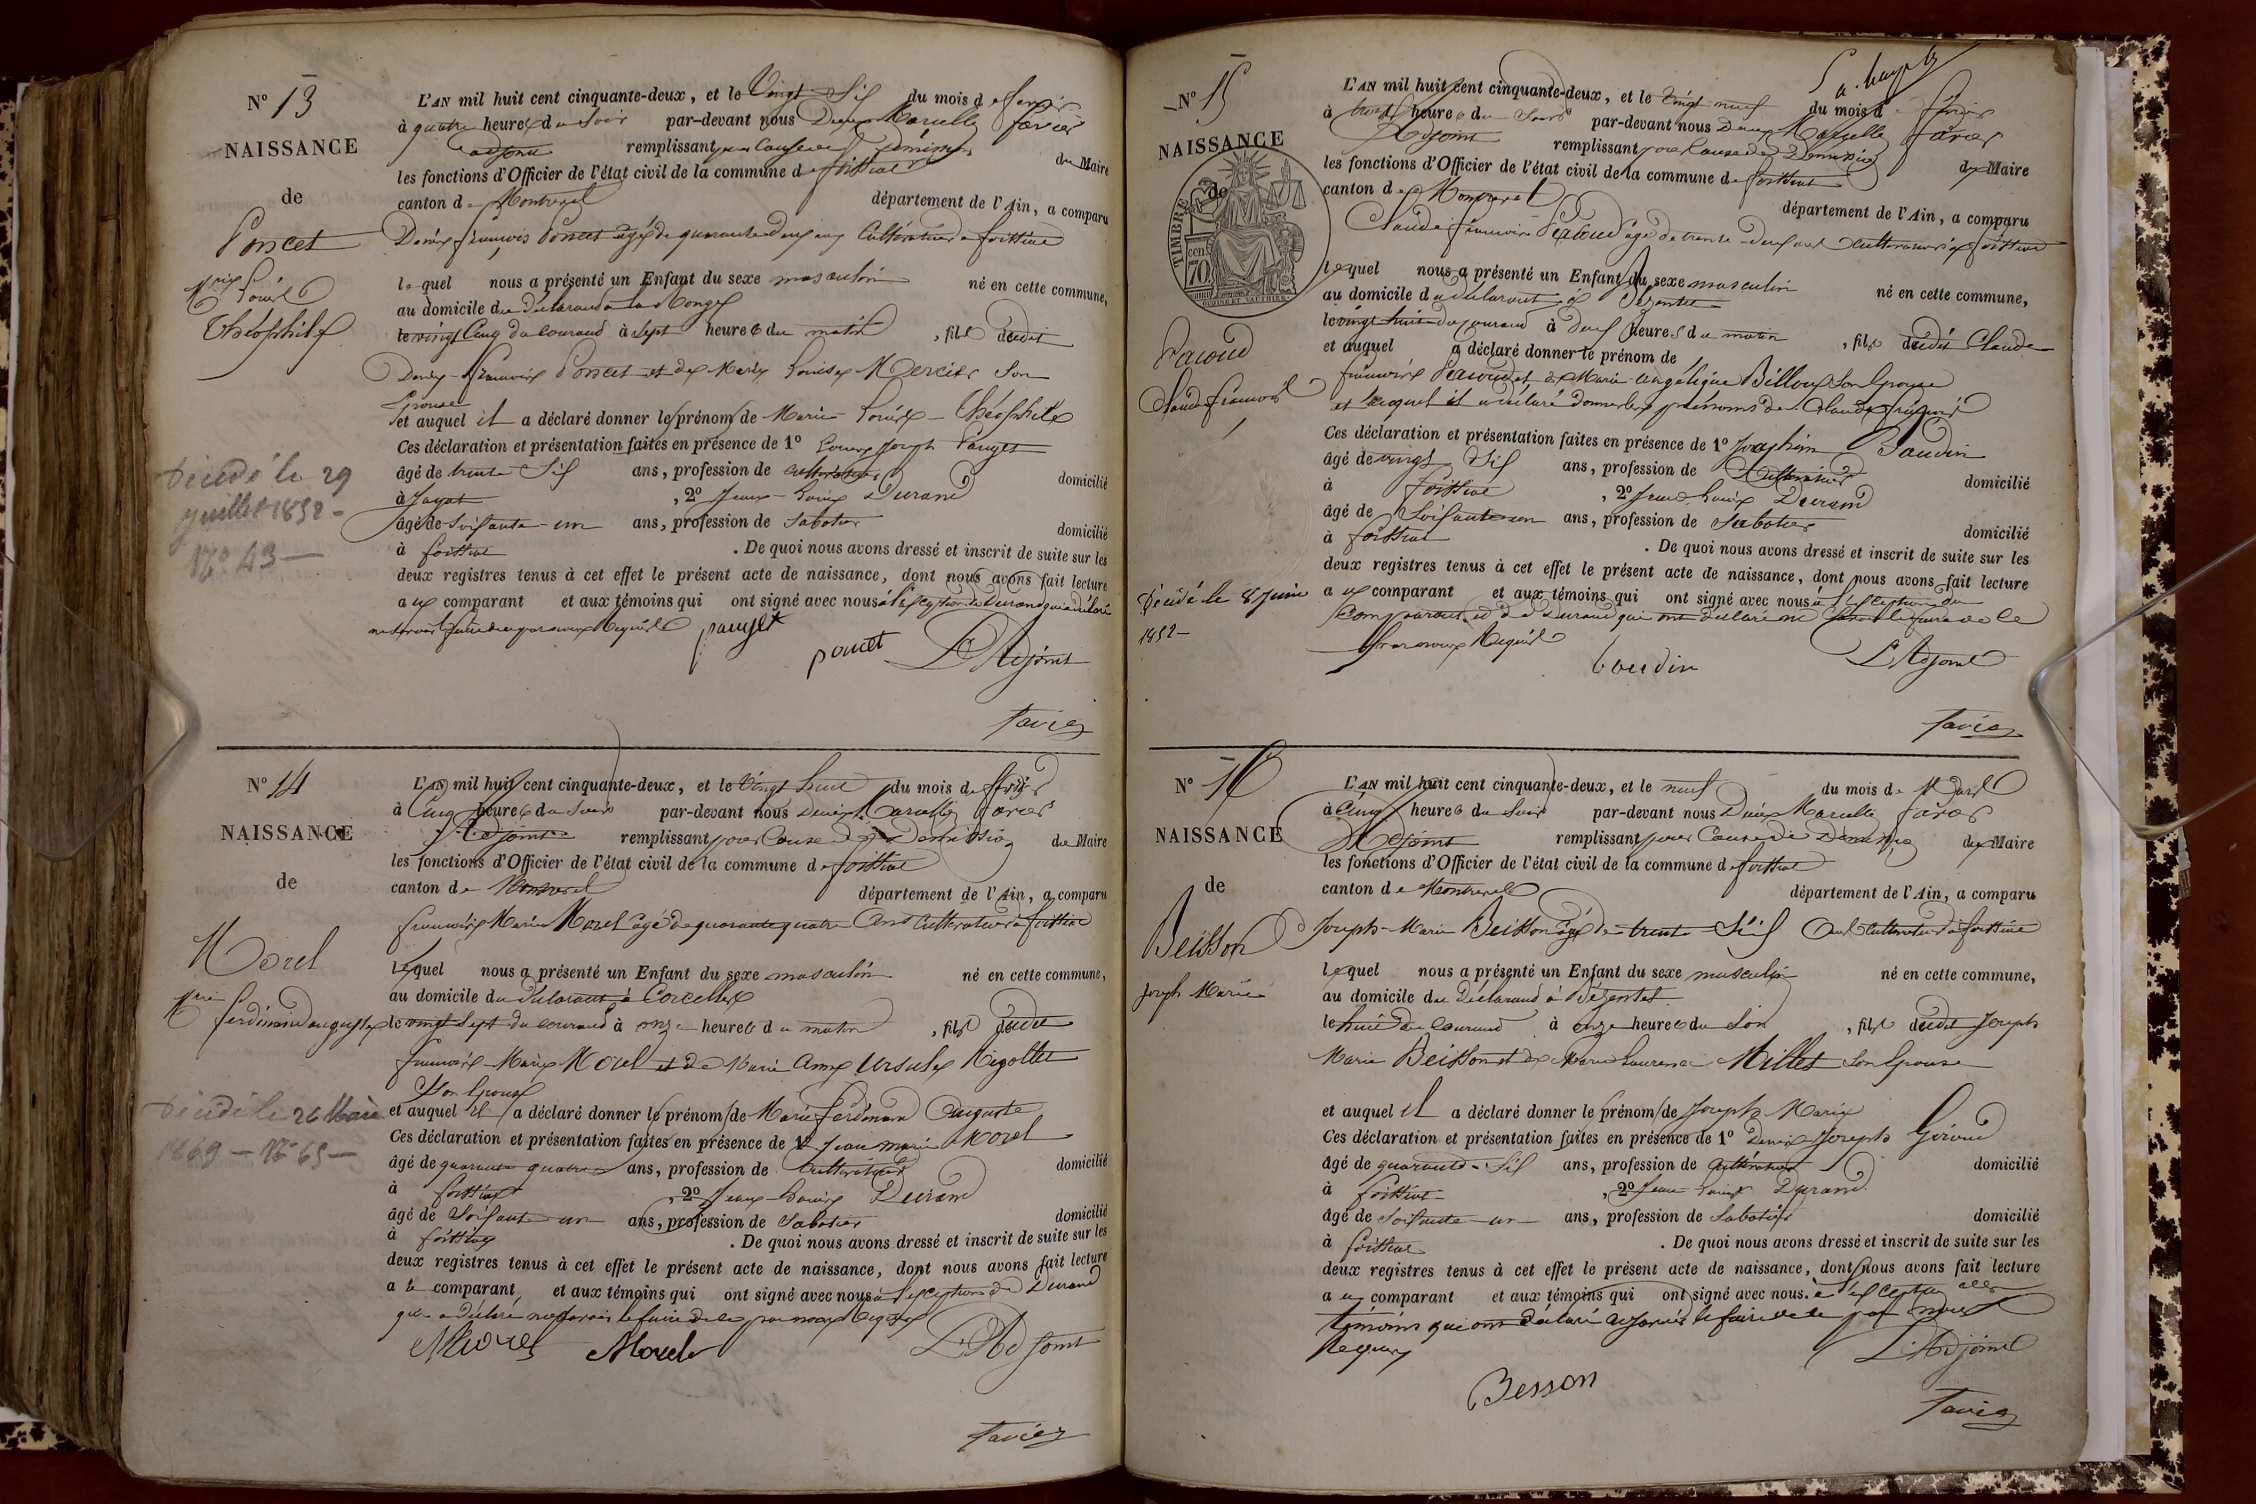 N° 13
NAISSANCE
de
Poncet
Marie Louis
Théophile
Décédé le 29
juillet 1852 -
N° 43 -
L'AN mil huit cent cinquante-deux, et le Vingt Six du mois de février
à quatre heures du Soir par-devant nous Denis Marcelle favier
adjoint remplissant pour cause de démission du Maire
les fonctions d'Officier de l'état civil de la commune de foissiat
canton de Montrevel département de l'Ain, a comparu
Denis françois Poncet âgé de quarante deux ans Cultivateur à foissiat
lequel nous a présenté un Enfant du sexe masculin né en cette commune,
au domicile du déclarant à
le vingt Cinq du courant à Sept heures du matin, fils dudit
Denis-françois Poncet et de Marie Louise Mercier Son
Epouse
et auquel il a déclaré donner les prénoms de Marie Louis Théophile
Ces déclaration et présentation faites en présence de 1° Joseph Pauget
âgé de trente Six ans, profession de cultivateur domicilié
à Jayat, 2° Jean-Louis Durand
âgé de Soixante-un ans, profession de Sabotier domicilié
à foissiat. De quoi nous avons dressé et inscrit de suite sur les
deux registres tenus à cet effet le présent acte de naissance, dont nous avons fait lecture
aux comparant et aux témoins qui ont signé avec nous à l'exception de Durand qui a déclaré
ne savoir faire de ce par nous Requis
pauget
poncet L'Adjoint
favier
N° 14
NAISSANCE
de
Morel
Marie
ferdinand auguste
Décédé le 26
1869 - N° 65 -
L'AN mil huit cent cinquante-deux, et le Vingt huit du mois de février
à Cinq heures du Soir par-devant nous Denis Marcelle favier
Adjoint remplissant pour Cause de Démission du Maire
les fonctions d'Officier de l'état civil de la commune de foissiat
canton de Montrevel département de l'Ain, a comparu
françois Marie Morel âgé de quarante quatre Ans Cultivateur à foissiat
lequel nous a présenté un Enfant du sexe masculin né en cette commune,
au domicile du déclarant à Corcelles
le vingt Sept du courant à onze heures du matin, fils dudit
françois-Marie Morel et de Marie Anne Ursule Rigollet
Son Epouse
et auquel il a déclaré donner les prénoms de Marie ferdinand Auguste
Ces déclaration et présentation faites en présence de 1° Jean Marie Morel
âgé de quarante quatre ans, profession de Cultivateur domicilié
à foissiat, 2° Jean-Louis Durand
âgé de Soixante-un ans, profession de Sabotier domicilié
à foissiat. De quoi nous avons dressé et inscrit de suite sur les
deux registres tenus à cet effet le présent acte de naissance, dont nous avons fait lecture
a le comparant et aux témoins qui ont signé avec nous à l'exception de Durand
qui a déclaré ne savoir le faire de ce par nous Requis
Morel Morel L'Adjoint
favier
N° 15
NAISSANCE
de
TIMBRE
70
Pacoud
Claude françois
Décédé le 8 Juin
1852 -
L'AN mil huit cent cinquante-deux, et le Vingt neuf du mois de février
à trois heures du Soir par-devant nous Denis Marcelle favier
Adjoint remplissant pour Cause de Démission du Maire
les fonctions d'Officier de l'état civil de la commune de foissiat
canton de Montrevel département de l'Ain, a comparu
Claude françois Pacoud âgé de trente-deux ans cultivateur à foissiat
lequel nous a présenté un Enfant du sexe masculin né en cette commune,
au domicile du déclarant à Bézentet
le vingt huit du courant à deux heures du matin, fils dudit Claude
françois Pacoud et de Marie Angélique Billoux Son Epouse
et auquel a déclaré donner le prénom de
et auquel il a déclaré donner les prénoms de Claude françois
Ces déclaration et présentation faites en présence de 1° Joachim Baudin
âgé de vingt Six ans, profession de Cultivateur domicilié
à foissiat, 2° Jean-Louis Durand
âgé de Soixante un ans, profession de Sabotier domicilié
à foissiat. De quoi nous avons dressé et inscrit de suite sur les
deux registres tenus à cet effet le présent acte de naissance, dont nous avons fait lecture
aux comparant et aux témoins qui ont signé avec nous à l'exception du
Comparant et de Durand qui ont déclaré ne Savoir le faire de ce
par nous Requis
baudin L'Adjoint
favier
N° 16
NAISSANCE
de
Beisson
Joseph Marie
L'AN mil huit cent cinquante-deux, et le neuf du mois de Mars
à Cinq heures du Soir par-devant nous Denis Marcelle favier
Adjoint remplissant pour Cause de Démission du Maire
les fonctions d'Officier de l'état civil de la commune de foissiat
canton de Montrevel département de l'Ain, a comparu
Joseph-Marie Beisson âgé de trente Six Ans Cultivateur à foissiat
lequel nous a présenté un Enfant du sexe masculin né en cette commune,
au domicile du Déclarant à Bézentet.
le huit du Courant à onze heures du Soir, fils dudit Joseph
Marie Beisson et de Marie Laurence Millet Son Epouse
et auquel il a déclaré donner le prénom de Joseph-Marie
Ces déclaration et présentation faites en présence de 1° Denis Joseph Giroud
âgé de quarante-Six ans, profession de Cultivateur domicilié
à foissiat, 2° Jean Louis Durand
âgé de Soixante-un ans, profession de Sabotier domicilié
à foissiat. De quoi nous avons dressé et inscrit de suite sur les
deux registres tenus à cet effet le présent acte de naissance, dont nous avons fait lecture
aux comparant et aux témoins qui ont signé avec nous à l'exception des
témoins qui ont déclaré ne Savoir le faire de ce par nous
Requis
Besson L'Adjoint
favier